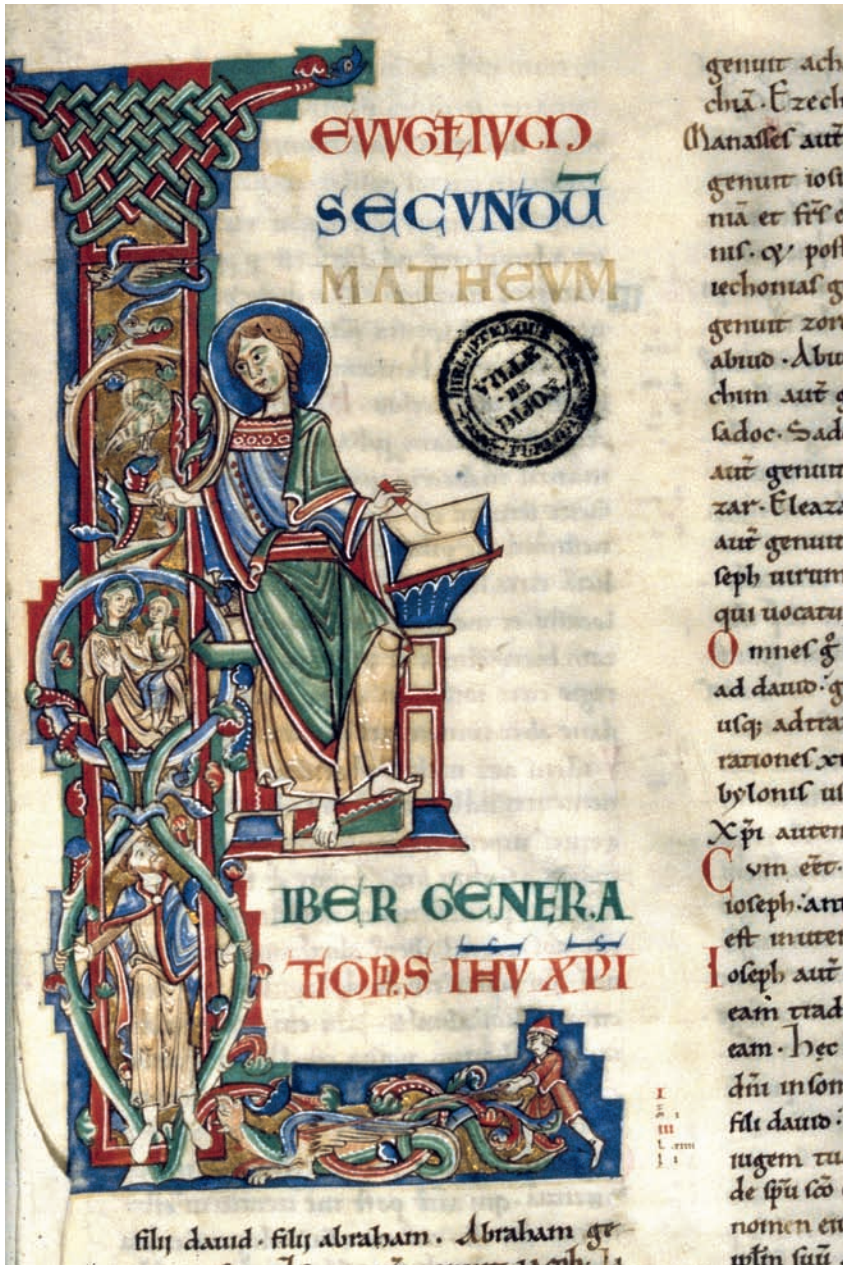 EVVGELIVM
SECVNDŪ
MATHEVM
BIBLIOTHEQUE
VILLE
DE
DIJON
IBER GENERA
TIONIS IHV XPI
filij dauid · filij abraham . Abraham ge
genuit ach
chiā · Ezech
Manasses aut̄
genuit iosi
niā et fr̄s e
nis · cy post
iechonias g
genuit zoro
abiud · Abiu
chim aut̄ g
sadoc · Sad
aut̄ genuit
zar · Eleaza
aut̄ genuit
seph uirum
qui uocatu
Omnes g̊
ad dauid · g
usq; ad tra
rationes xi
bylonis us
Xp̄i autem
Cvm eēt ·
ioseph · ant
est inuten
Ioseph aut̄
eam trad
eam · hec
dn̄i in som
fili dauid ·
iugem tu
de sp̄u sc̄o
nomen ei